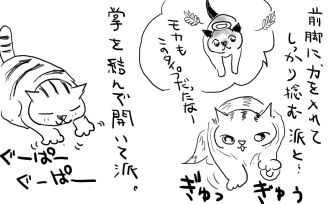 前脚に力を入れて
しっかり捻む派と…
モカも
このタイプだったなー
ぎゅっ
ぎゅぅ
掌を結んで開いて派。
ぐーぱー
ぐーぱー